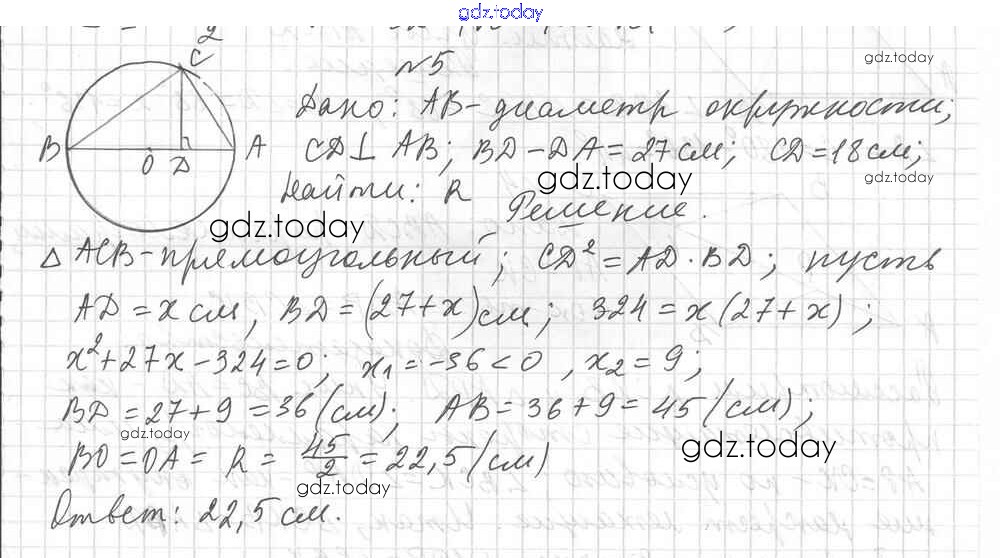 gdz.today
2
C
№5
gdz.today
Дано: AB-диаметр окружности;
B O D A
CD⊥AB; BD-DA=27см; CD=18см;
gdz.today
gdz.today
Найти: R
gdz.today
Решение.
△ACB-прямоугольный; CD²=AD·BD; пусть
AD=x см, BD=(27+x)см; 324=x(27+x);
x²+27x-324=0; x₁=-36<0, x₂=9;
BD=27+9=36(см); AB=36+9=45(см);
gdz.today
gdz.today
BO=OA=R=45/2=22,5(см)
gdz.today
Ответ: 22,5см.